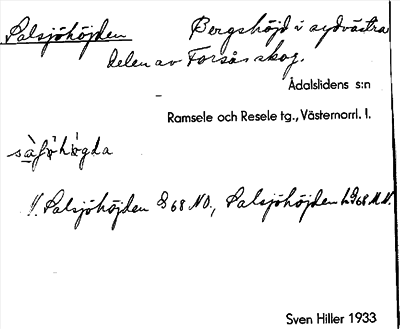 Salsjöhöjden Bergshöjd i sydvästra
delen av Forsås skog.
Ådalslidens s:n
Ramsele och Resele tg., Västernorrl. l.
Salsjöhöjden 968 NO., Salsjöhöjden
Sven Hiller 1933